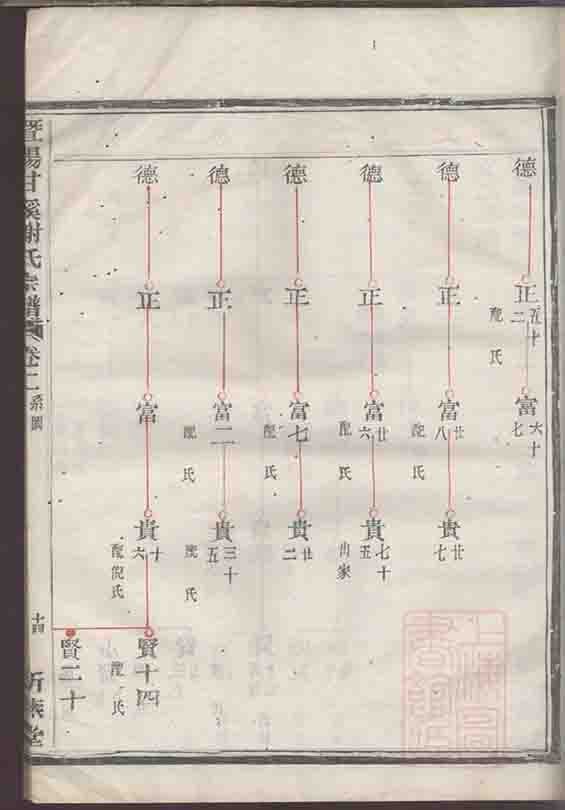 德
正五十二
配 氏
富六十七
德
正
富廿八
配 氏
貴廿七
德
正
富廿六
配 氏
貴七十五
出家
德
正
富七
配 氏
貴廿二
德
正
富二
配 氏
貴三十五
配 氏
德
正
富
貴十六
配倪氏
賢十四
配 氏
賢二十
暨陽甘溪謝氏宗譜
卷二
系圖
十四